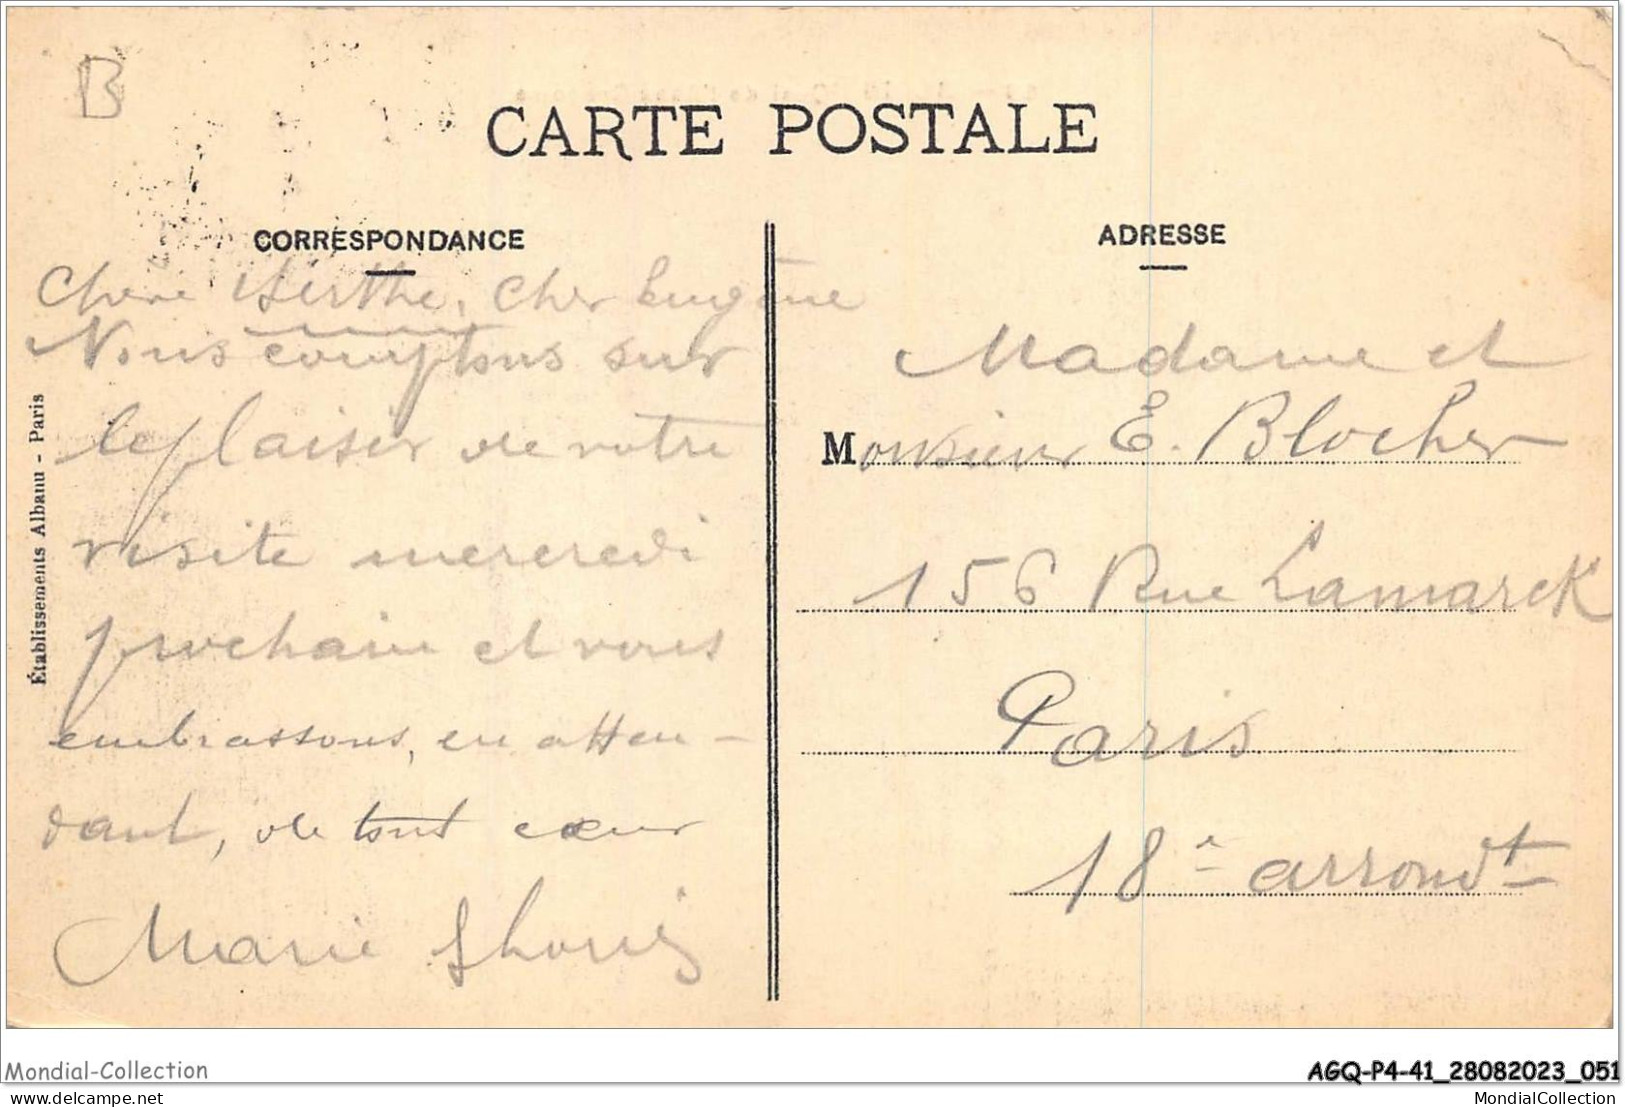 B
CARTE POSTALE
CORRESPONDANCE
ADRESSE
Chère Berthe, cher Eugène
Nous comptons sur
le plaisir de votre
visite mercredi
prochain et vous
embrassons, en atten-
dant, de tout cœur
Marie
Madame et
Monsieur E. Blocher
156 Rue Lamarck
Paris
18e arrondt
Établissements Albanu - Paris
Mondial-Collection
AGQ-P4-41_28082023_051
www.delcampe.net
MondialCollection